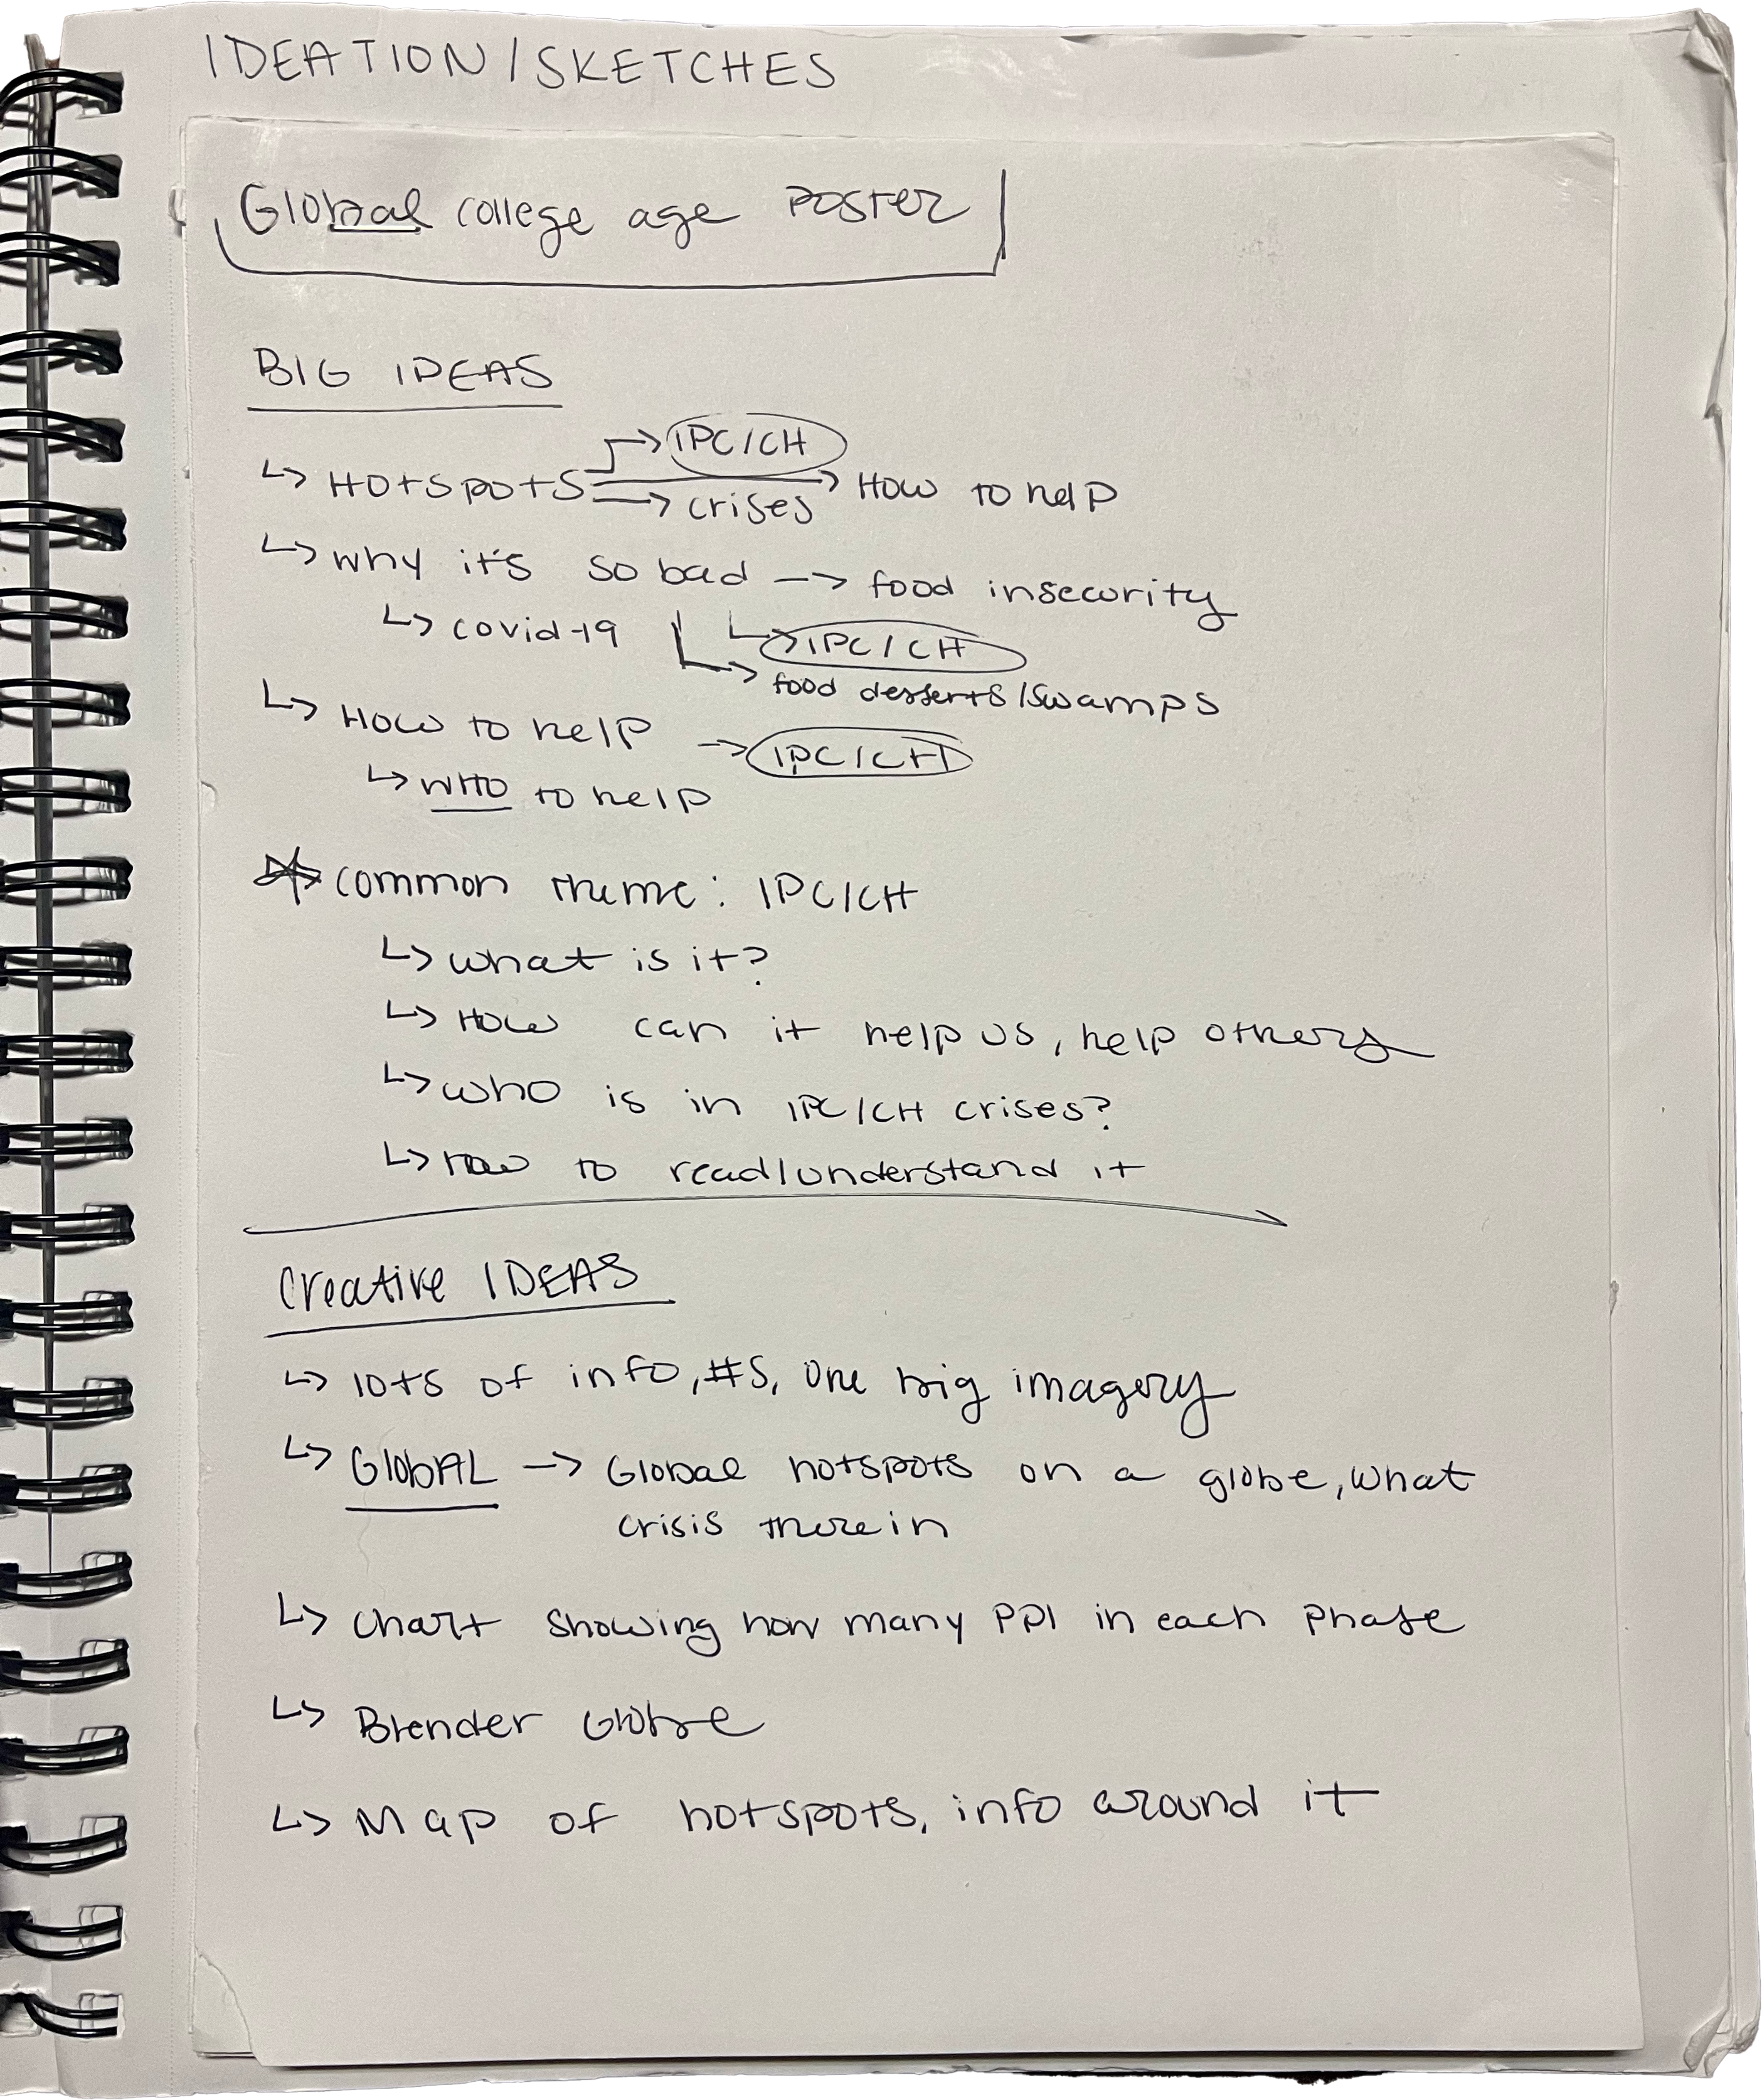 IDEATION/SKETCHES
Global college age POSTER
BIG IDEAS
↳ HOTSPOTS → IPC/CH
→ crises → HOW to help
↳ why it's so bad → food insecurity
↳ covid-19 ↳ IPC/CH
↳ food desserts/swamps
↳ HOW to help → IPC/CH
↳ WHO to help
☆ common theme: IPC/CH
↳ what is it?
↳ HOW can it help us, help others
↳ who is in IPC/CH crises?
↳ how to read/understand it
Creative IDEAS
↳ lots of info, #s, one big imagery
↳ GlobAL → Global hotspots on a globe, what
crisis there in
↳ chart showing how many ppl in each phase
↳ Blender Globe
↳ Map of hotspots, info around it